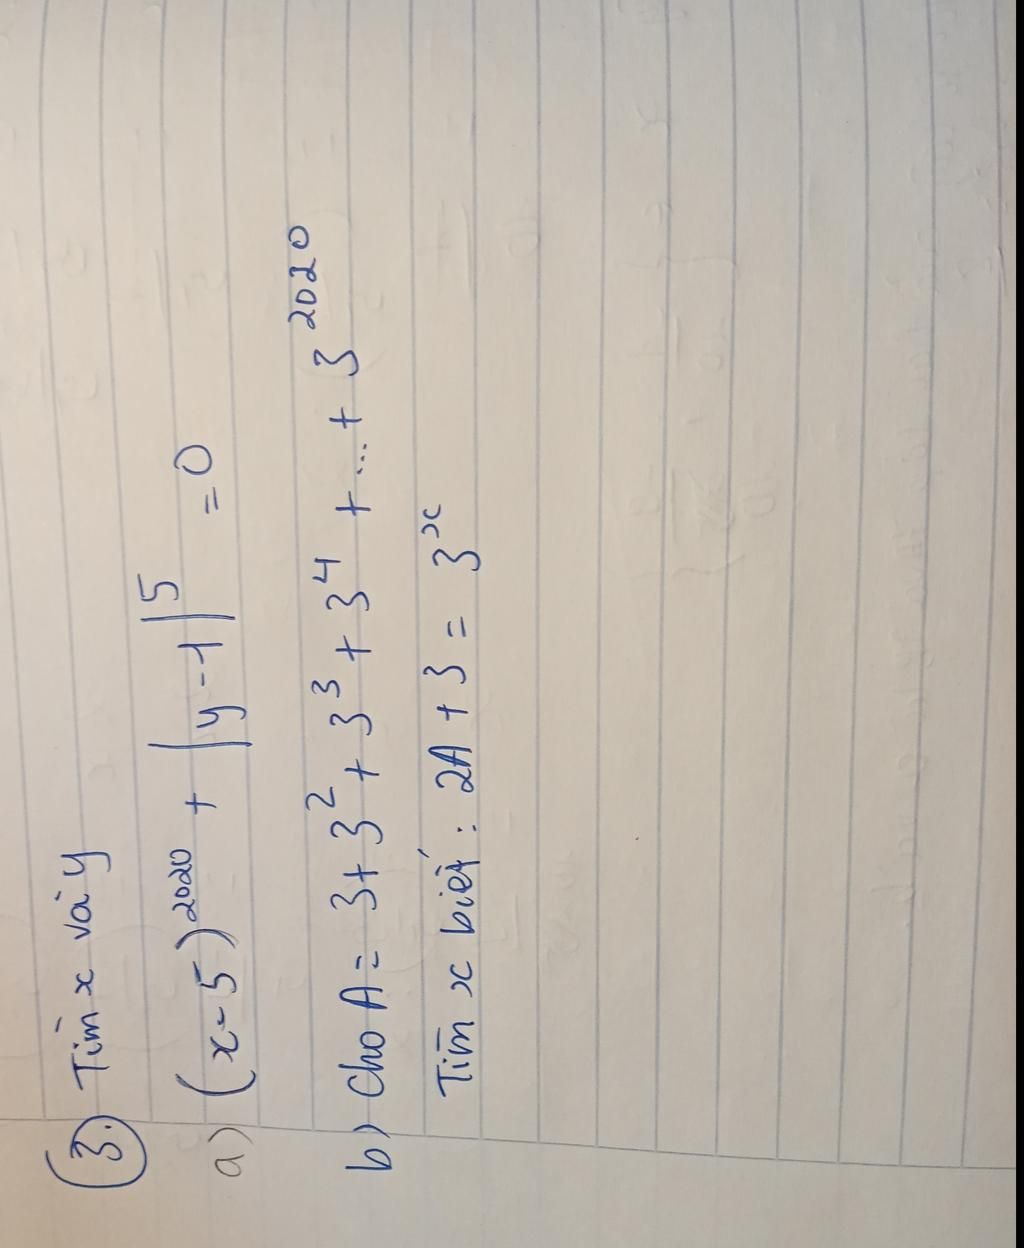 3. Tìm x và y
a) (x-5)^2020 + |y-1|^5 = 0
b) Cho A = 3+3^2+3^3+3^4+...+3^2020
Tìm x biết : 2A+3 = 3^x